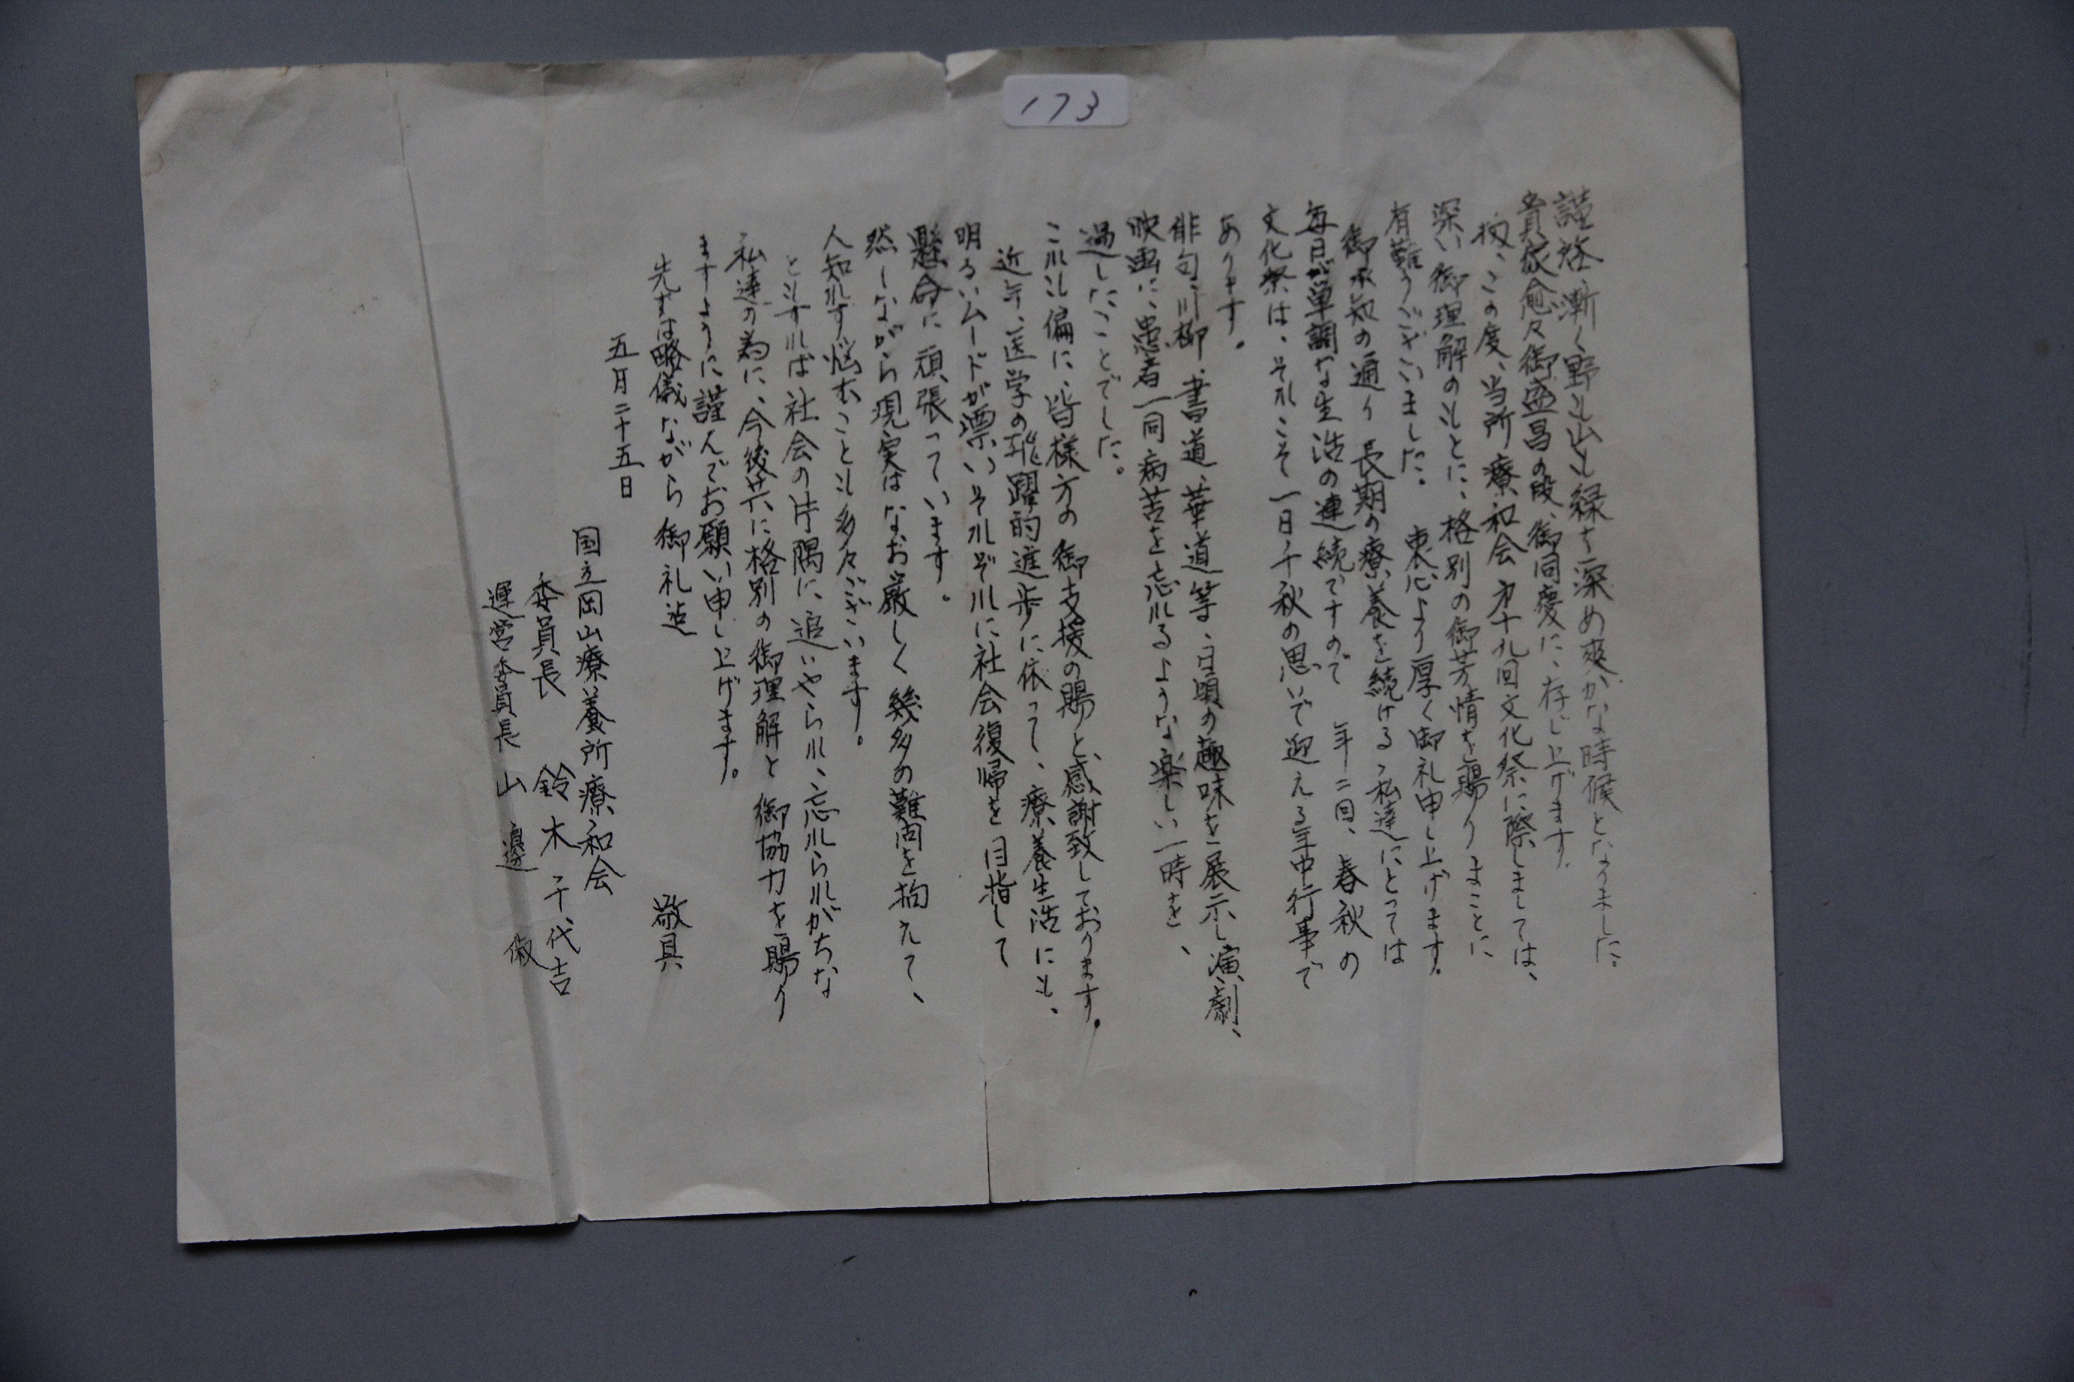 173
謹啓 漸く野も山も緑を深め爽かな時候となりました。
貴家愈々御盛昌の段、御同慶に、存じ上げます。
扨、この度、当所療和会第十九回文化祭に際しましては、
深い御理解のもとに、格別の御芳情を賜りまことに
有難うございました。衷心より厚く御礼申し上げます。
御承知の通り長期の療養を続ける私達にとっては
毎日が単調な生活の連続ですので 年二回、春秋の
文化祭は、それこそ一日千秋の思いで迎える年中行事で
あります。
俳句、川柳、書道、華道等、日頃の趣味を展示し演劇、
映画に、患者一同病苦を忘れるような楽しい一時を、
過したことでした。
これも偏に、皆様方の御支援の賜と感謝致しております。
近年、医学の飛躍的進歩に依って、療養生活にも、
明るいムードが漂いそれぞれに社会復帰を目指して
懸命に頑張っています。
然しながら現実はなお厳しく幾多の難問を抱えて、
人知れず悩むことも多々ございます。
ともすれば社会の片隅に追いやられ、忘れられがちな
私達の為に、今後共に格別の御理解と御協力を賜り
ますように謹んでお願い申し上げます。
先ずは略儀ながら御礼迄
敬具
五月二十五日
国立岡山療養所療和会
委員長 鈴木千代吉
運営委員長 山邊 俶